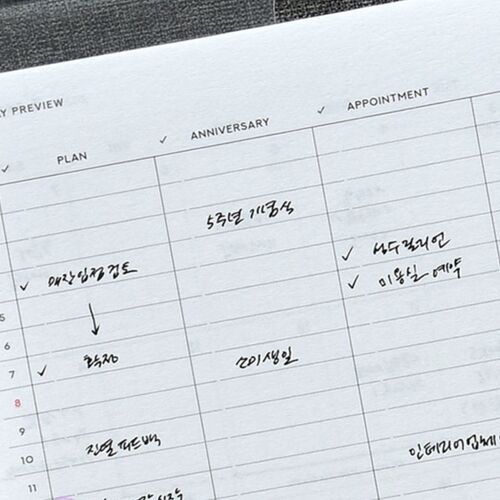 Y PREVIEW
✓ PLAN
✓ ANNIVERSARY
✓ APPOINTMENT
5주년 기념식
✓ 매장입점검토
✓ 미용실 예약
5
6
7 ✓ 확정
소미생일
8
9
10 진열 피드백
인테리어업체
11